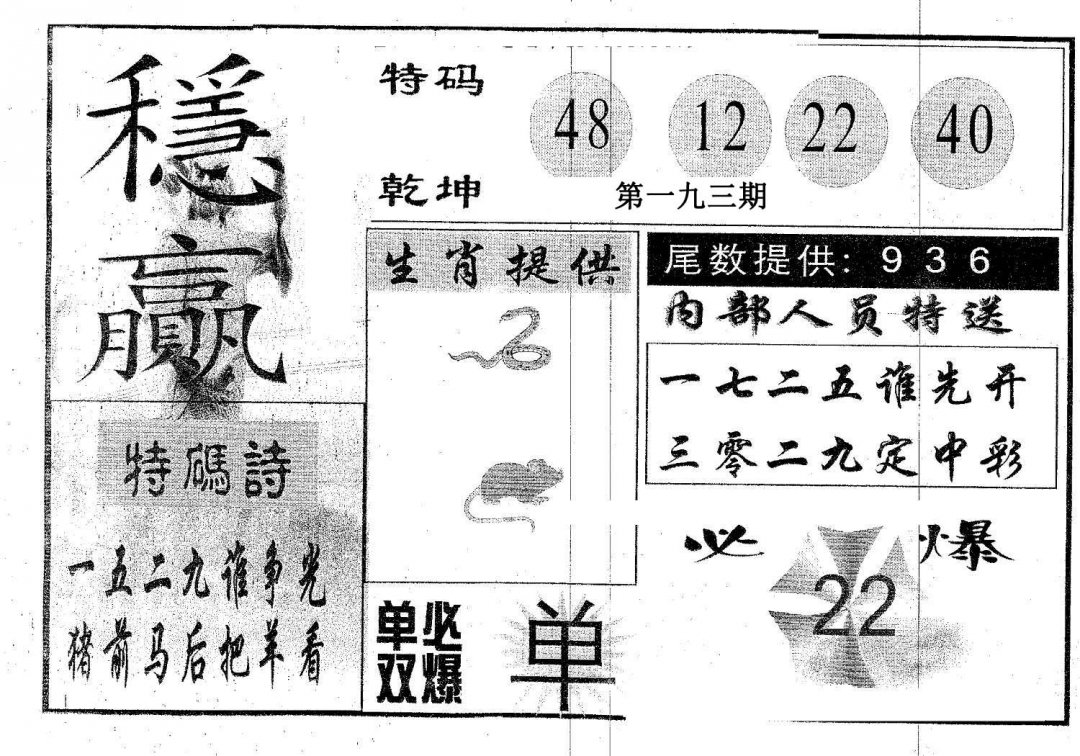 穩
贏
特码
48 12 22 40
乾坤
第一九三期
生肖提供
尾数提供: 9 3 6
内部人员特送
一七二五谁先开
三零二九定中彩
特碼詩
一五二九谁争光
猪前马后把羊看
单必
双爆
单
必 22 爆